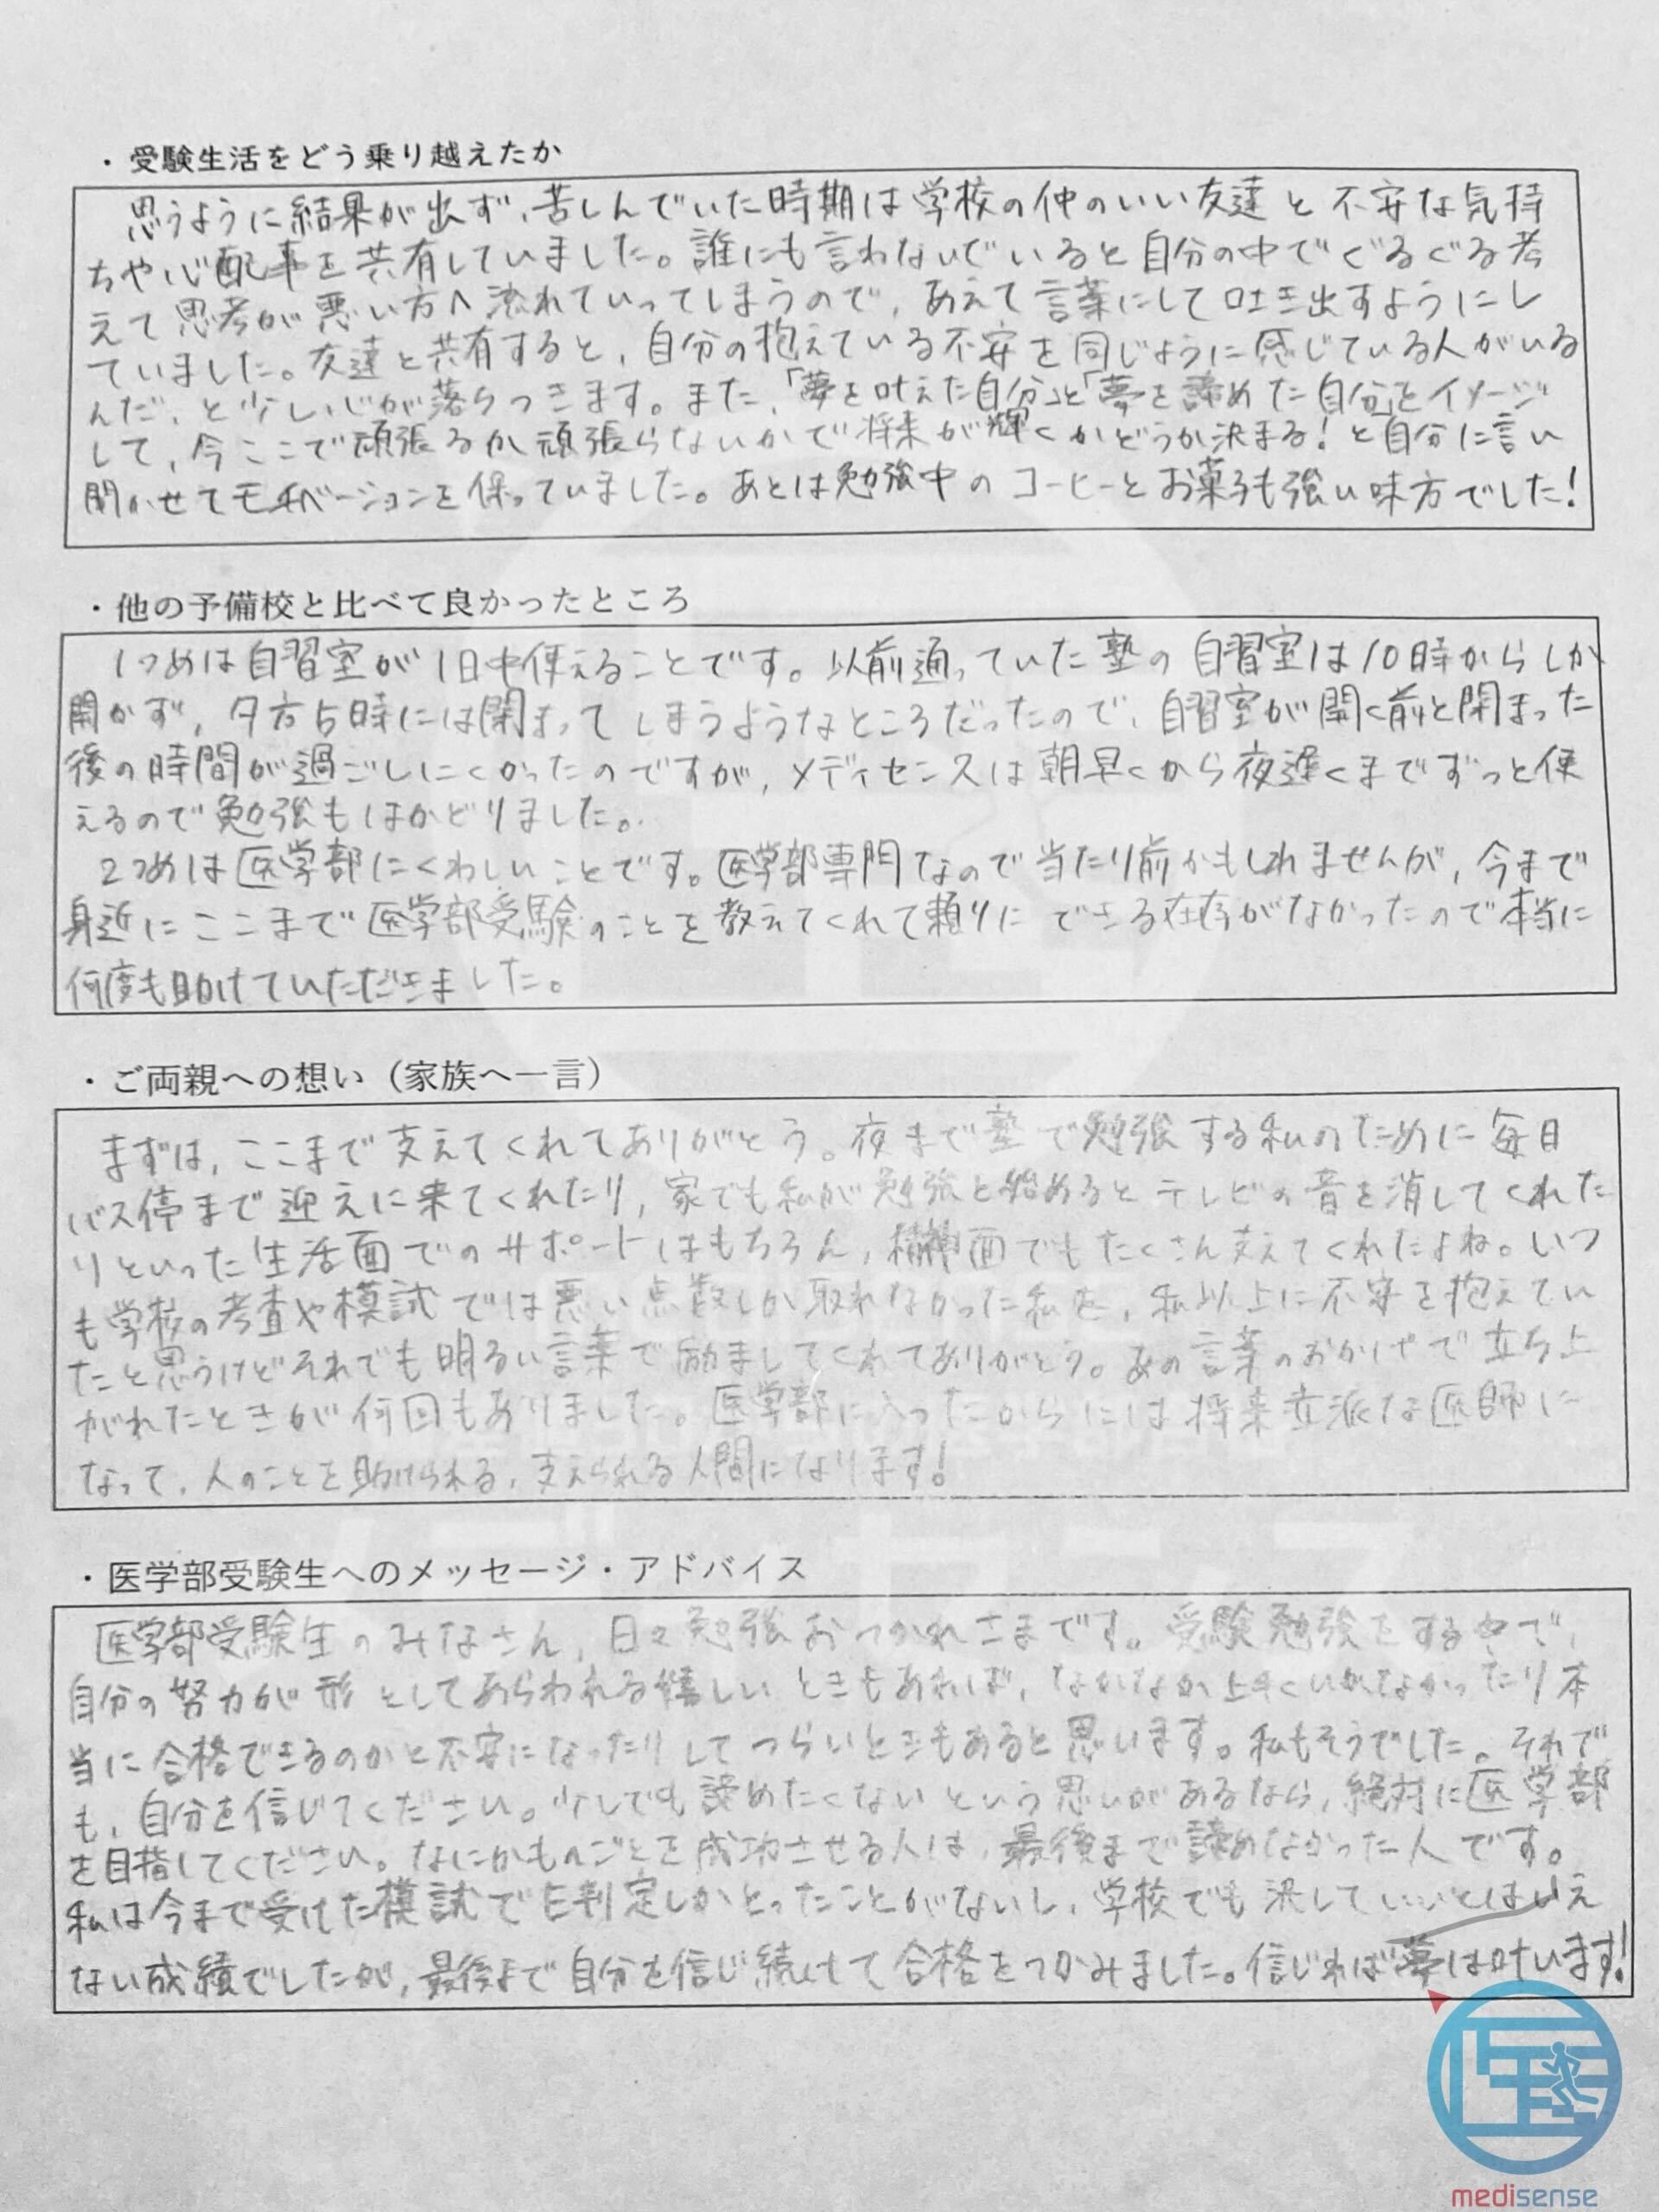 ・受験生活をどう乗り越えたか
思うように結果が出ず、苦しんでいた時期は学校の仲のいい友達と不安な気持
ちや心配事を共有していました。誰にも言わないでいると自分の中でぐるぐる考
えて思考が悪い方へ流れていってしまうので、あえて言葉にして吐き出すようにし
ていました。友達と共有すると、自分の抱えている不安を同じように感じている人がいる
んだ、と少し心が落ちつきます。また、「夢を叶えた自分」と「夢を諦めた自分」をイメージ
して、今ここで頑張るか頑張らないかで将来が輝くかどうか決まる！と自分に言い
聞かせてモチベーションを保っていました。あとは勉強中のコーヒーとお菓子も強い味方でした！
・他の予備校と比べて良かったところ
1つめは自習室が1日中使えることです。以前通っていた塾の自習室は10時からしか
開かず、夕方5時には閉まってしまうようなところだったので、自習室が開く前と閉まった
後の時間が過ごしにくかったのですが、メディセンスは朝早くから夜遅くまでずっと使
えるので勉強もはかどりました。
2つめは医学部にくわしいことです。医学部専門なので当たり前かもしれませんが、今まで
身近にここまで医学部受験のことを教えてくれて頼りにできる存在がなかったので本当に
何度も助けていただきました。
・ご両親への想い（家族へ一言）
まずは、ここまで支えてくれてありがとう。夜まで塾で勉強する私のために毎日
バス停まで迎えに来てくれたり、家でも私が勉強を始めるとテレビの音を消してくれた
りといった生活面でのサポートはもちろん、精神面でもたくさん支えてくれたよね。いつ
も学校の考査や模試では悪い点数しか取れなかった私を、私以上に不安を抱えてい
たと思うけどそれでも明るい言葉で励ましてくれてありがとう。あの言葉のおかげで立ち上
がれたときが何回もありました。医学部に入ったからには将来立派な医師に
なって、人のことを助けられる、支えられる人間になります！
・医学部受験生へのメッセージ・アドバイス
医学部受験生のみなさん、日々勉強おつかれさまです。受験勉強をする中で、
自分の努力が形としてあらわれる嬉しいときもあれば、なかなか上手くいかなかったり本
当に合格できるのかと不安になったりしてつらいときもあると思います。私もそうでした。それで
も、自分を信じてください。少しでも諦めたくないという思いがあるなら、絶対に医学部
を目指してください。なにかものごとを成功させる人は、最後まで諦めなかった人です。
私は今まで受けた模試でE判定しかとったことがないし、学校でも決していいとはいえ
ない成績でしたが、最後まで自分を信じ続けて合格をつかみました。信じれば夢は叶います！
medisense